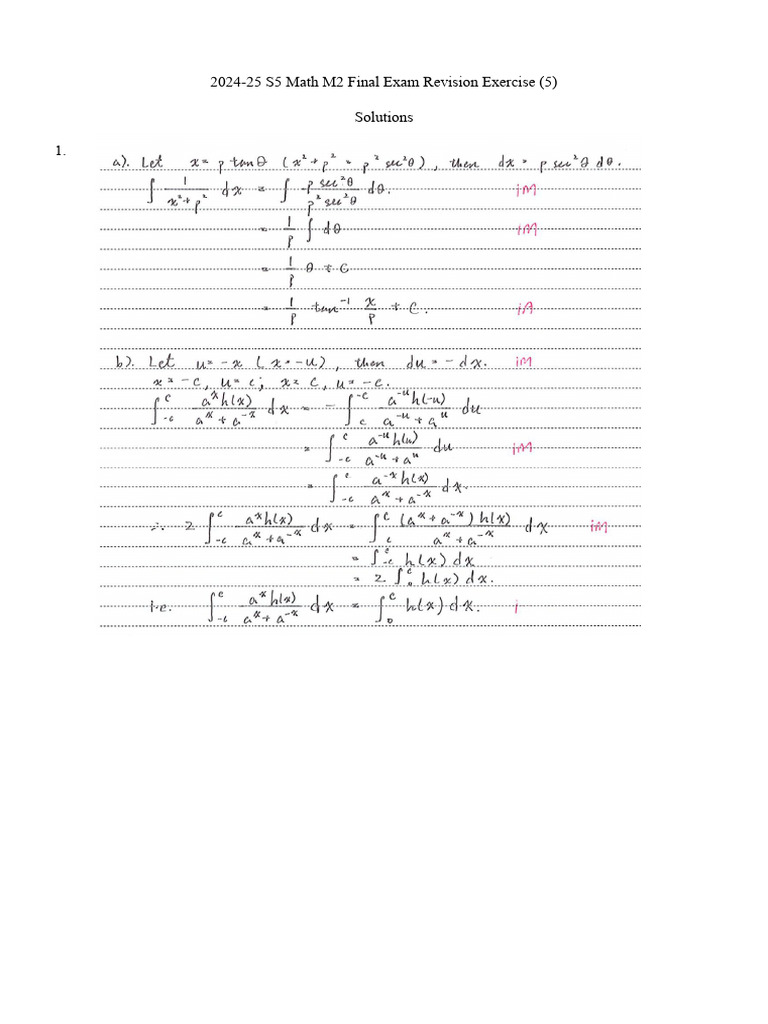 2024-25 S5 Math M2 Final Exam Revision Exercise (5)
Solutions
1.
a). Let x = p tanθ (x² + p² = p² sec²θ), then dx = p sec²θ dθ.
∫ 1/(x² + p²) dx = ∫ p sec²θ/(p² sec²θ) dθ. 1M
= 1/p ∫ dθ 1M
= 1/p θ + C
= 1/p tan⁻¹ x/p + C. 1A
b). Let u = -x (x = -u), then du = -dx. 1M
x = -c, u = c; x = c, u = -c.
∫_{-c}^{c} a^x h(x)/(a^x + a^{-x}) dx = -∫_{c}^{-c} a^{-u} h(-u)/(a^{-u} + a^u) du
= ∫_{-c}^{c} a^{-u} h(u)/(a^{-u} + a^u) du 1M
= ∫_{-c}^{c} a^{-x} h(x)/(a^x + a^{-x}) dx.
∴ 2 ∫_{-c}^{c} a^x h(x)/(a^x + a^{-x}) dx = ∫_{-c}^{c} (a^x + a^{-x}) h(x)/(a^x + a^{-x}) dx 1M
= ∫_{-c}^{c} h(x) dx
= 2 ∫_{0}^{c} h(x) dx.
i.e. ∫_{-c}^{c} a^x h(x)/(a^x + a^{-x}) dx = ∫_{0}^{c} h(x) dx. 1